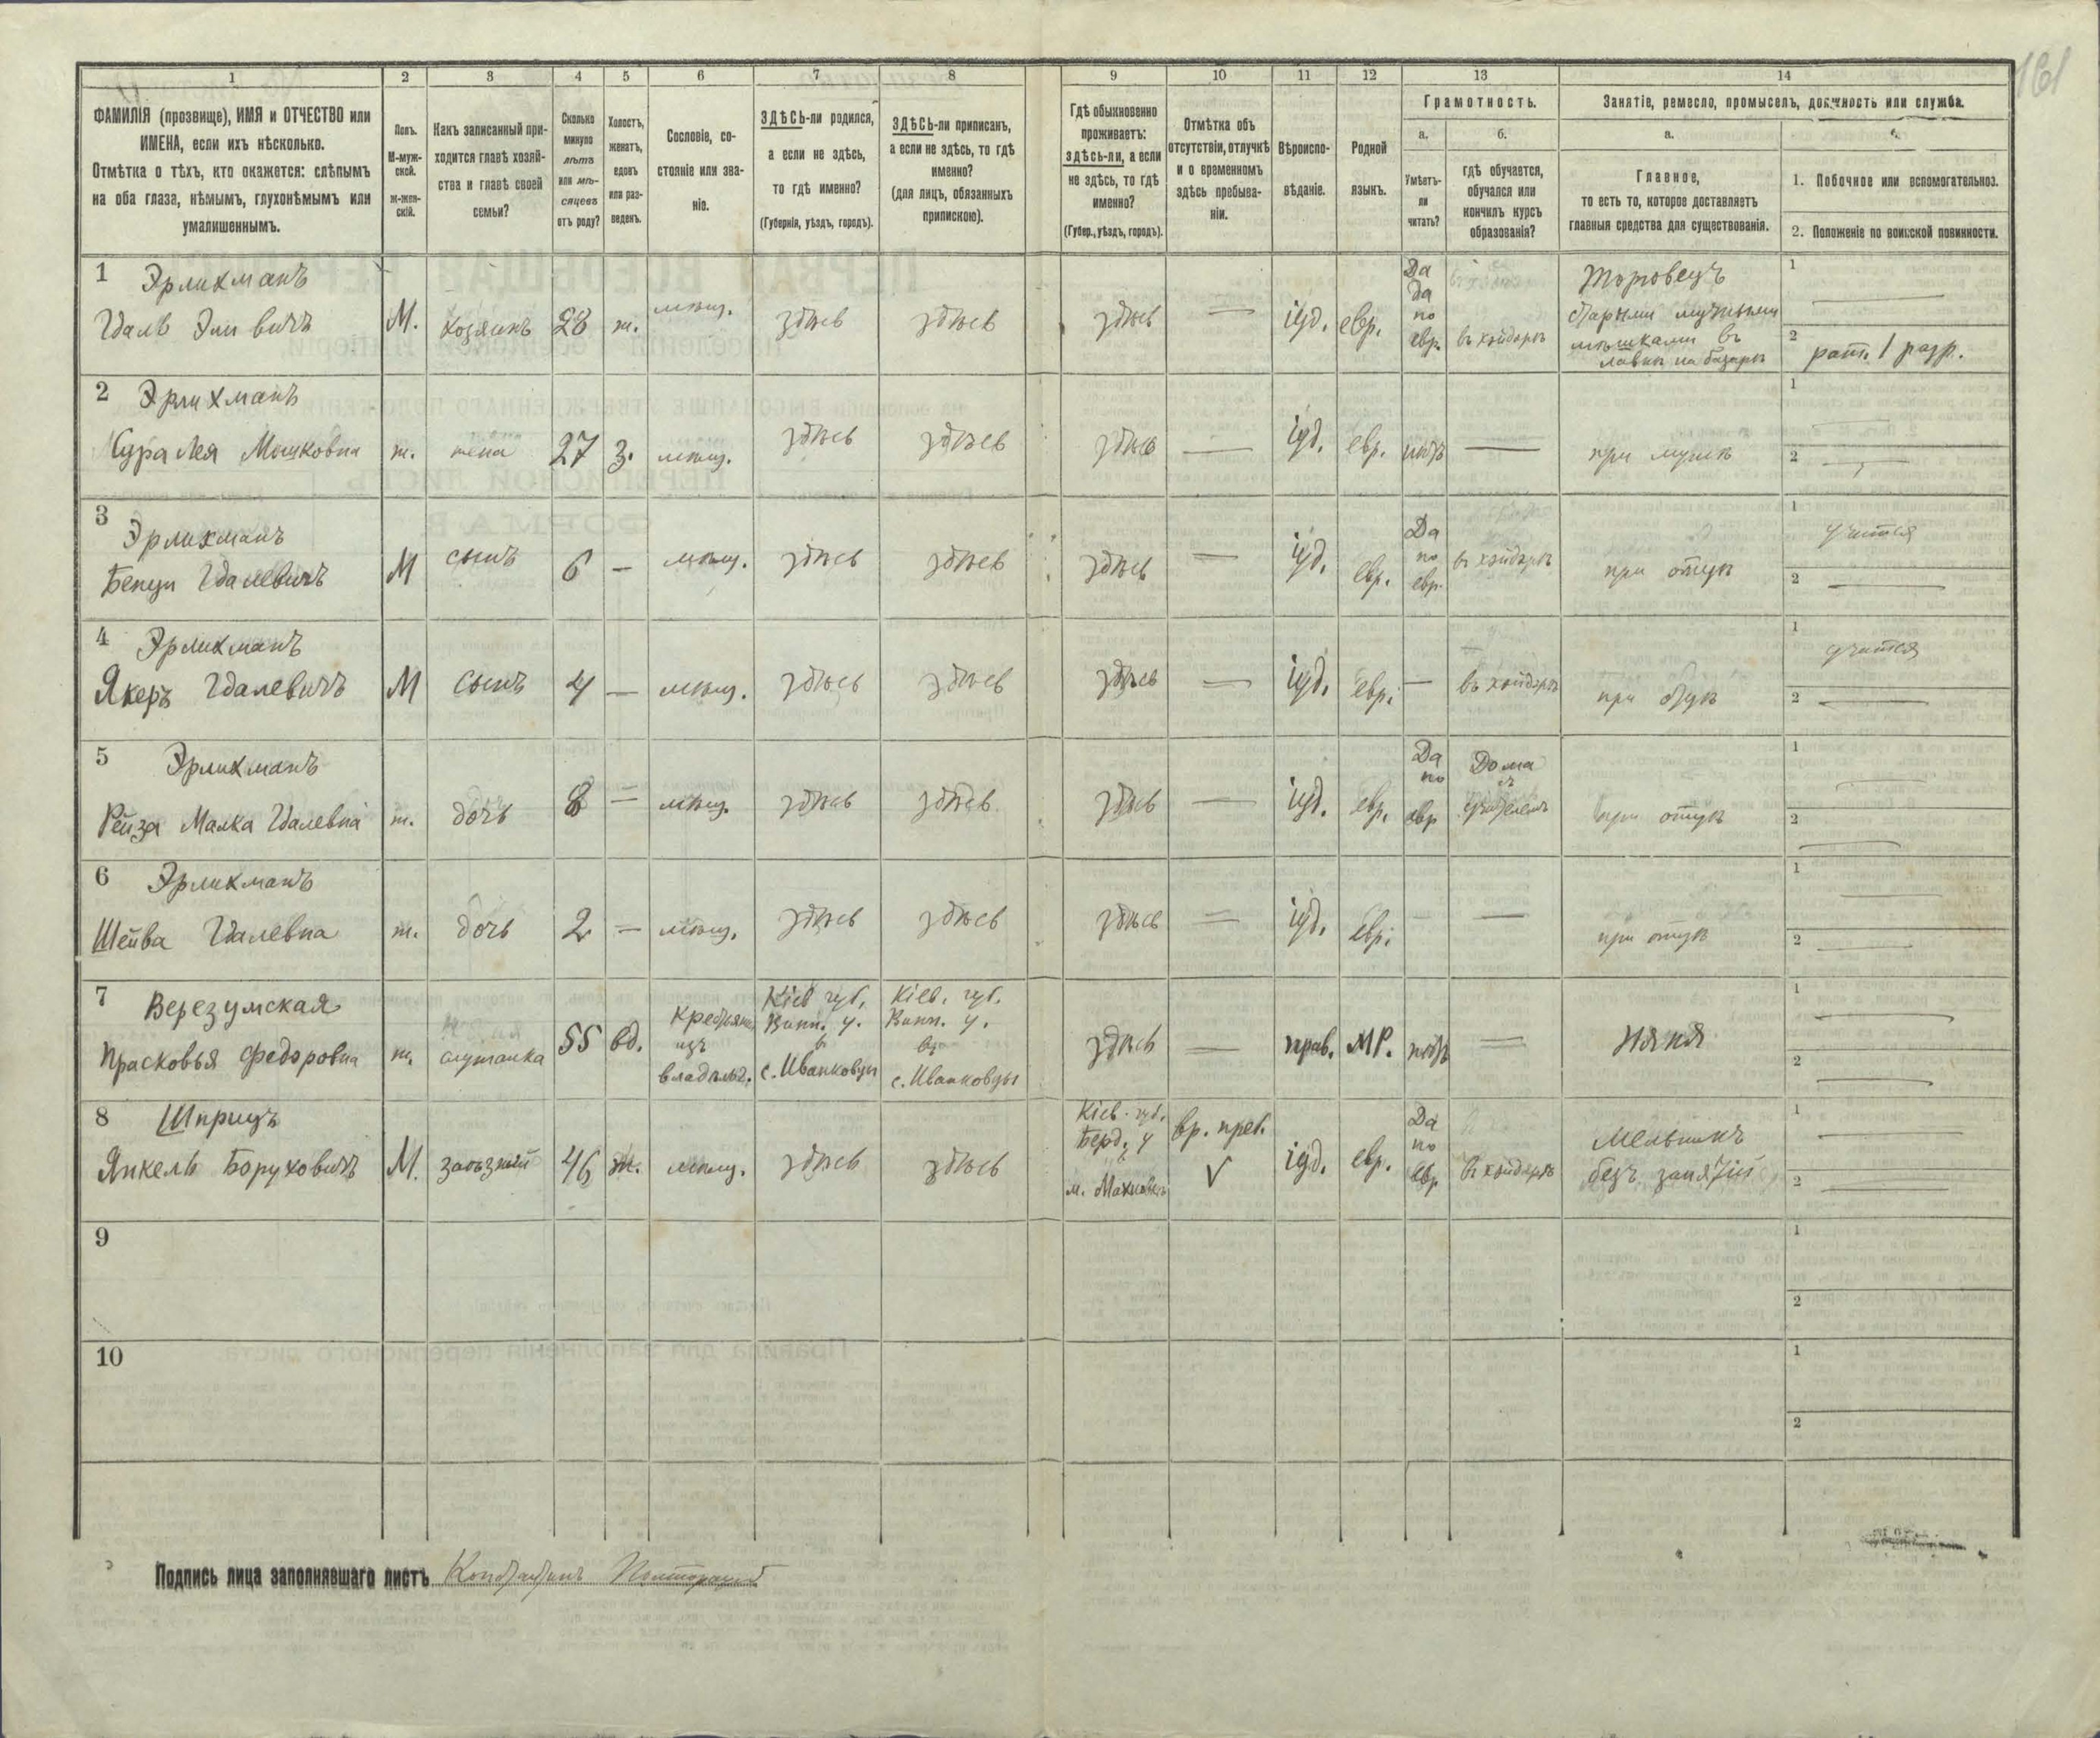 161
1 2 3 4 5 6 7 8 9 10 11 12 13 14
ФАМИЛІЯ (прозвище), ИМЯ и ОТЧЕСТВО или
ИМЕНА, если ихъ нѣсколько.
Отмѣтка о тѣхъ, кто окажется: слѣпымъ
на оба глаза, нѣмымъ, глухонѣмымъ или
умалишеннымъ.
Полъ.
М-муж-
ской.
Ж-жен-
скій.
Какъ записанный при-
ходится главѣ хозяй-
ства и главѣ своей
семьи?
Сколько
минуло
лѣтъ
или мѣ-
сяцевъ
отъ роду?
Холостъ,
женатъ,
вдовъ
или раз-
веденъ.
Сословіе, со-
стояніе или зва-
ніе.
ЗДѢСЬ-ли родился,
а если не здѣсь,
то гдѣ именно?
(Губернія, уѣздъ, городъ).
ЗДѢСЬ-ли приписанъ,
а если не здѣсь, то гдѣ
именно?
(для лицъ, обязанныхъ
припискою).
Гдѣ обыкновенно
проживаетъ:
здѣсь-ли, а если
не здѣсь, то гдѣ
именно?
(Губер., уѣздъ, городъ).
Отмѣтка объ
отсутствіи, отлучкѣ
и о временномъ
здѣсь пребыва-
ніи.
Вѣроиспо-
вѣданіе.
Родной
языкъ.
Грамотность.
а.
Умѣетъ-
ли
читать?
б.
гдѣ обучается,
обучался или
кончилъ курсъ
образованія?
Занятіе, ремесло, промыселъ, должность или служба.
а.
Главное,
то есть то, которое доставляетъ
главныя средства для существованія.
1. Побочное или вспомогательное.
2. Положеніе по воинской повинности.
1 Эрлихманъ
Гдаль Эли вичъ
М.
хозяинъ
28
ж.
мѣщ.
здѣсь
здѣсь
здѣсь
—
іуд.
евр.
Да
да
по
евр.
въ хэйдерѣ
Торговецъ
старыми мучными
мѣшками въ
лавкѣ на базарѣ
1 —
2 рат. 1 разр.
2 Эрлихманъ
Лея Мошковна
ж.
жена
27
з.
мѣщ.
здѣсь
здѣсь
здѣсь
—
іуд.
евр.
нѣтъ
—
при мужѣ
1 —
2 —
3 Эрлихманъ
Бенци Гдалевичъ
М
сынъ
6
—
мѣщ.
здѣсь
здѣсь
здѣсь
—
іуд.
евр.
Да
по
евр.
въ хэйдерѣ
при отцѣ
1 учится
2 —
4 Эрлихманъ
Якеръ Гдалевичъ
М
сынъ
4
—
мѣщ.
здѣсь
здѣсь
здѣсь
—
іуд.
евр.
—
въ хэйдерѣ
при отцѣ
1 учится
2 —
5 Эрлихманъ
Рейза Малка Гдалевна
ж.
дочь
8
—
мѣщ.
здѣсь
здѣсь
здѣсь
—
іуд.
евр.
Да
по
евр
Дома
съ
учителемъ
при отцѣ
1 —
2 —
6 Эрлихманъ
Шейва Гдалевна
ж.
дочь
2
—
мѣщ.
здѣсь
здѣсь
здѣсь
—
іуд.
евр.
—
—
при отцѣ
1 —
2 —
7 Верезумская
Прасковья Федоровна
ж.
служанка
55
вд.
Крестьян.
изъ
владѣльч.
Кіев губ,
Винн. у.
в
с. Иванковцы
Кіев. губ.
Винн. у.
въ
с. Иванковцы
здѣсь
—
прав.
МР.
нѣтъ
—
Няня
1 —
2 —
8 Шприцъ
Янкель Боруховичъ
М.
заѣзжій
46
ж.
мѣщ.
здѣсь
здѣсь
Кіев. губ.
Берд. у
м. Махновка
вр. преб.
V
іуд.
евр.
Да
по
евр
въ хэйдерѣ
Мельникъ
безъ занятій
1 —
2 —
9
1
2
10
1
2
Подпись лица заполнявшаго листъ Константинъ